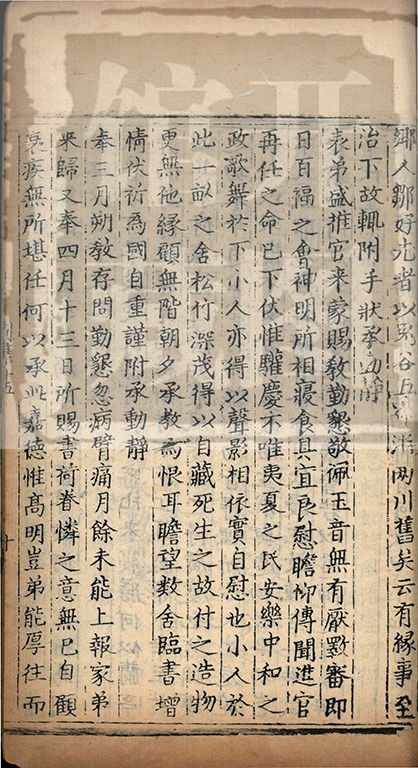 鄉人鄒好古者以
兩川舊矣云有緣事至
治下故輒附手狀承動靜
表弟盛推官來蒙賜教勤懇敬佩玉音無有厭斁審即
日百福之會神明所相寢食具宜良慰瞻仰傳聞進官
再任之命已下伏惟驩慶不唯夷夏之民安樂中和之
政歌舞於下小人亦得以聲影相依實自慰也小人於
此一畝之舍松竹深茂得以自藏死生之故付之造物
更無他緣顧無階朝夕承教為恨耳瞻望數舍臨書增
情伏祈為國自重謹附承動靜
奉三月朔教存問勤懇忽病臂痛月餘未能上報家弟
來歸又奉四月十三日所賜書荷眷憐之意無已自顧
衰疾無所堪任何以承此嘉德惟高明豈弟能厚往而